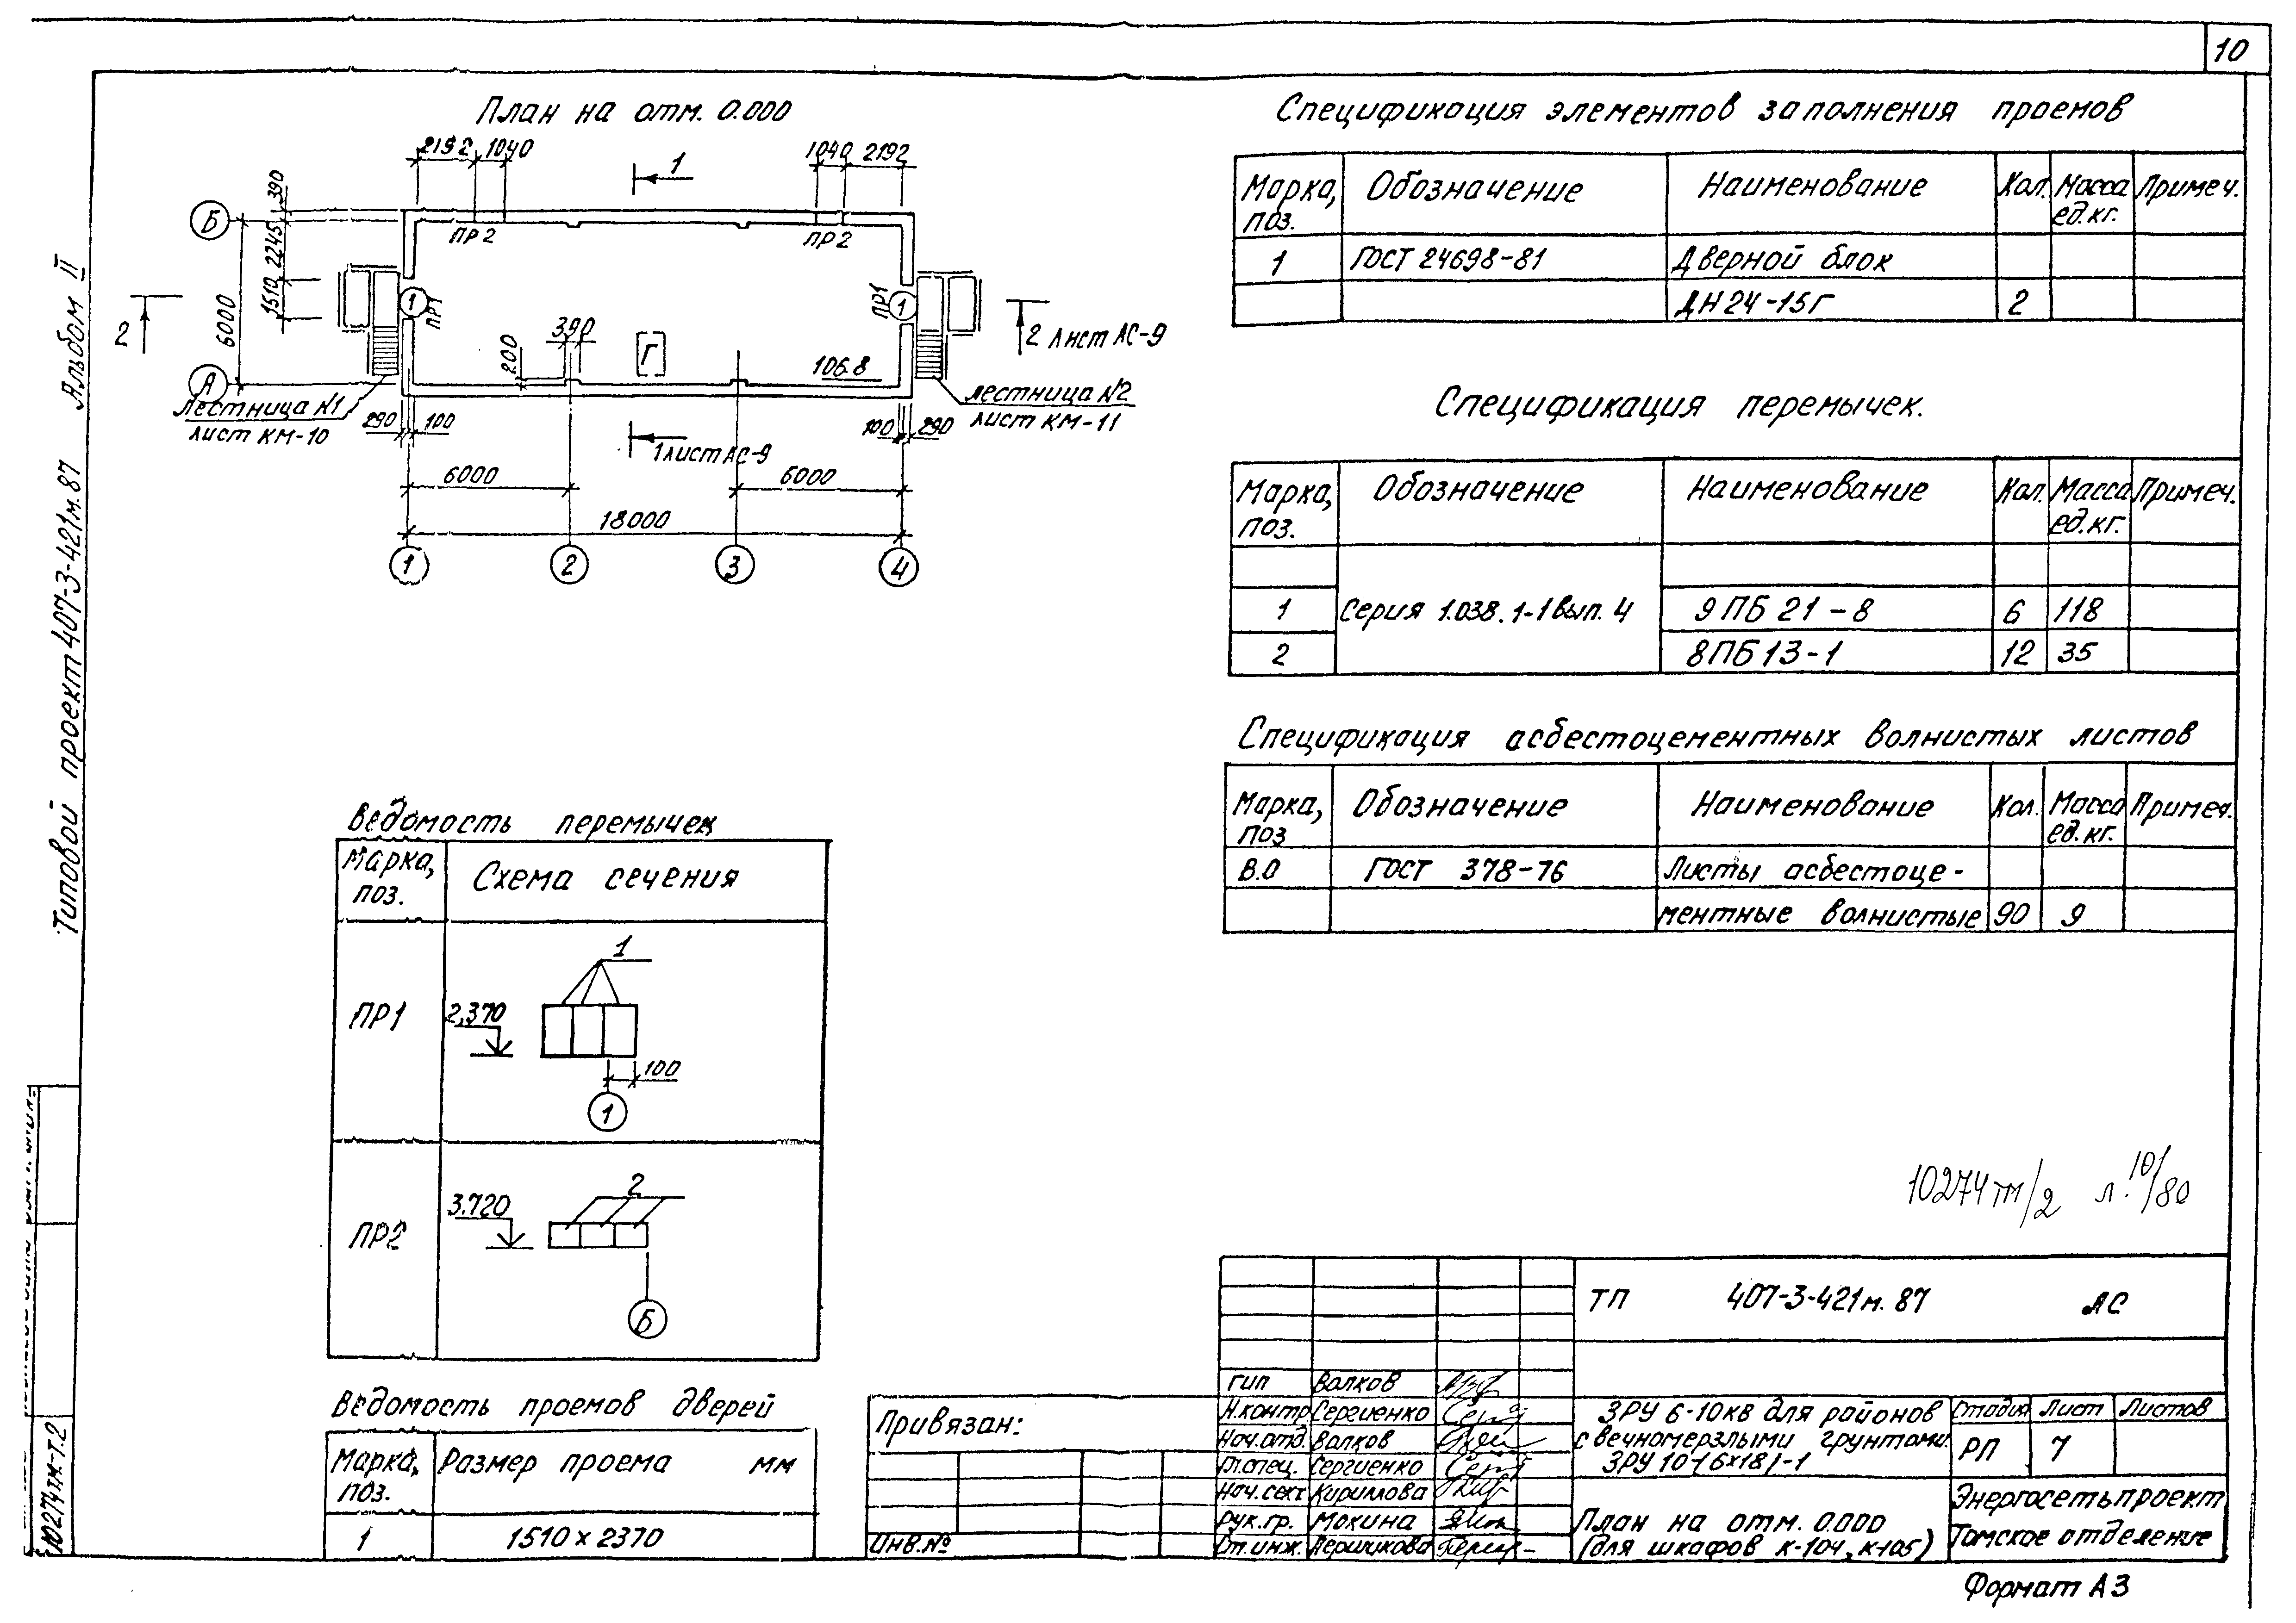 10
План на отм. 0.000
2192 1040
1040 2192
1
390
Б
2245
1510
6000
ПР2
ПР2
1
ПР1
ПР1
1
2
2 Лист АС-9
390
200
Г
106.8
А
Лестница №1
лист КМ-10
лестница №2
лист КМ-11
290 100
100 290
1 лист АС-9
6000
6000
18000
1 2 3 4
Спецификация элементов заполнения проемов
Марка, поз. Обозначение Наименование Кол. Масса ед.кг. Примеч.
1 ГОСТ 24698-81 Дверной блок
ДН 24-15Г 2
Спецификация перемычек.
Марка, поз. Обозначение Наименование Кол. Масса ед.кг. Примеч.
1 Серия 1.038.1-1 вып. 4 9ПБ 21-8 6 118
2 8ПБ13-1 12 35
Спецификация асбестоцементных волнистых листов
Марка, поз Обозначение Наименование Кол. Масса ед.кг. Примеч.
В.О ГОСТ 378-76 Листы асбестоце-
ментные волнистые 90 9
Ведомость перемычек
Марка, поз. Схема сечения
ПР1
1
2,370
100
1
ПР2
2
3.720
Б
Ведомость проемов дверей
Марка, поз. Размер проема мм
1 1510 х 2370
Типовой проект 407-3-421м.87 Альбом II
10274тм-т.2
10274тм/2 л. 10/80
Привязан:
Инв.№
ТП 407-3-421м.87 АС
ГИП Волков
Н.контр Сергиенко
Нач.отд. Волков
Гл.спец. Сергиенко
Нач.сект Кириллова
Рук.гр. Мокина
Ст.инж.
ЗРУ 6-10кВ для районов
с вечномерзлыми грунтами.
ЗРУ 10-(6х18)-1
Стадия Лист Листов
РП 7
План на отм. 0.000
(для шкафов К-104, К-105)
Энергосетьпроект
Томское отделение
Формат А3